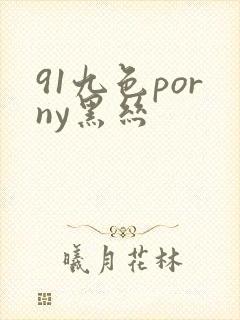 91九色por
ny黑丝
曦月花林